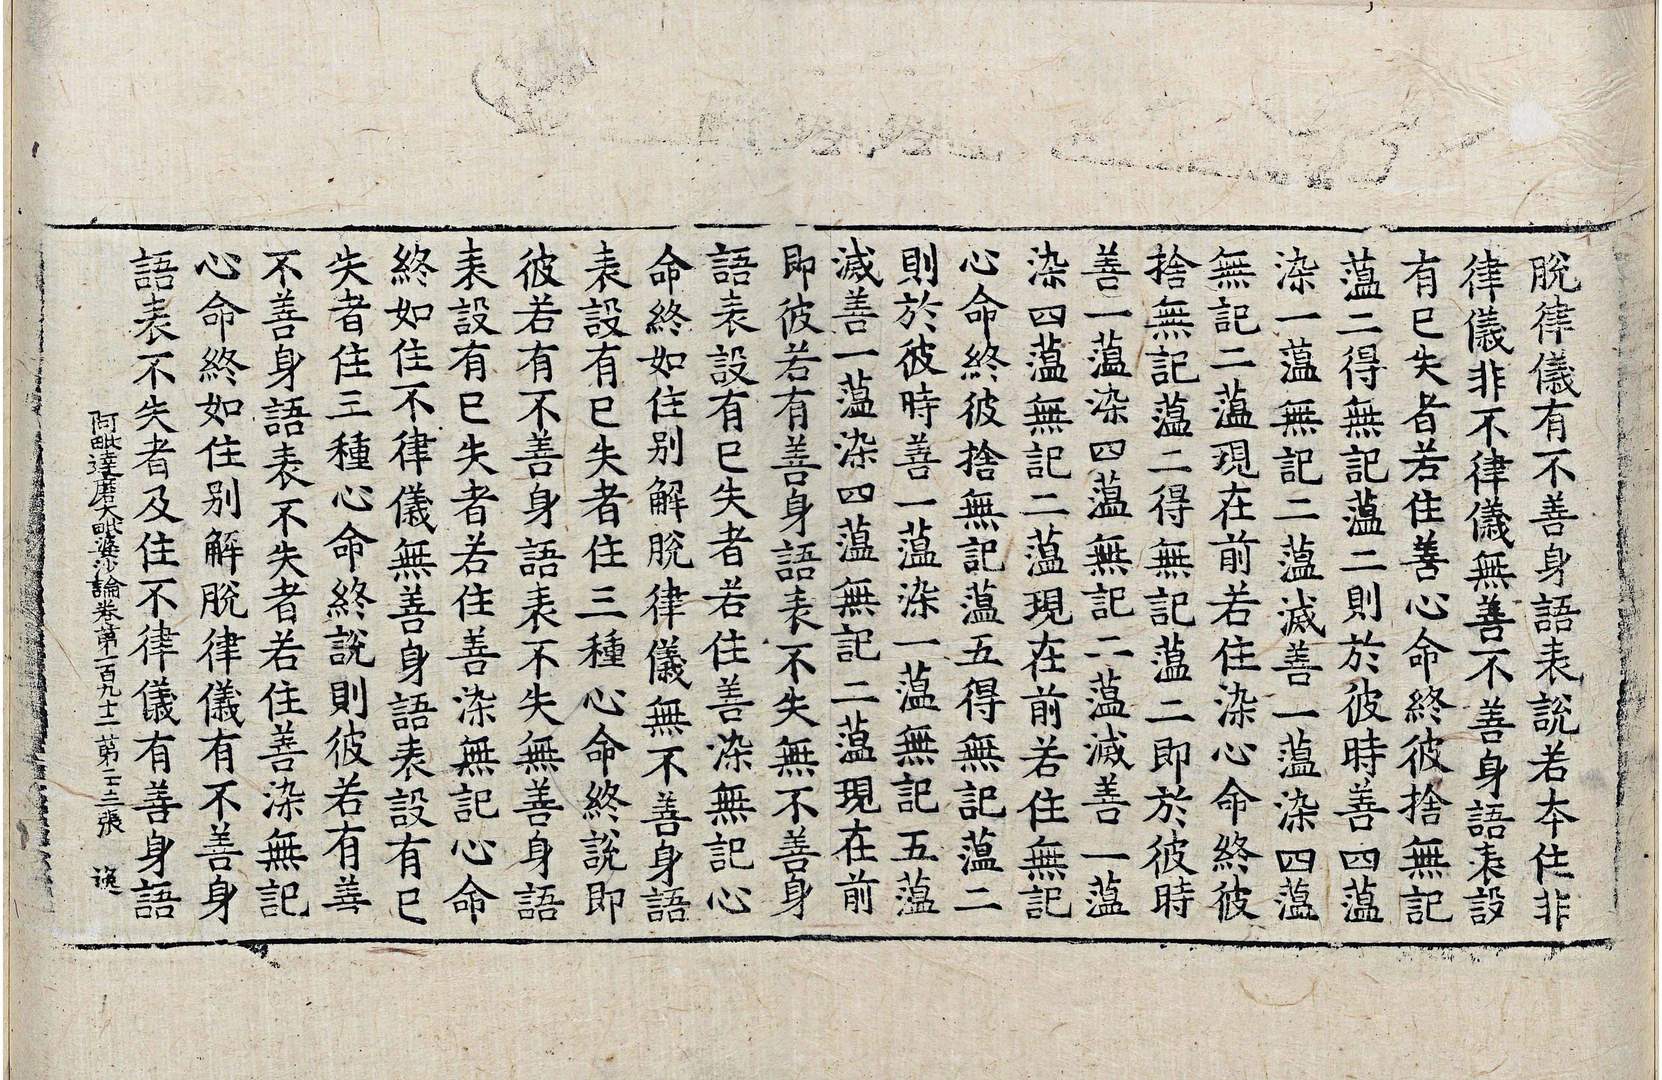 脫律儀有不善身語表說若本住非
律儀非不律儀無善不善身語表設
有已失者若住善心命終彼捨無記
蕰二得無記蕰二則於彼時善四蕰
染一蕰無記二蕰滅善一蕰染四蕰
無記二蕰現在前若住染心命終彼
捨無記蕰二得無記蕰二即於彼時
善一蕰染四蕰無記二蕰滅善一蕰
染四蕰無記二蕰現在前若住無記
心命終彼捨無記蕰五得無記蕰二
則於彼時善一蕰染一蕰無記五蕰
滅善一蕰染四蕰無記二蕰現在前
即彼若有善身語表不失無不善身
語表設有已失者若住善染無記心
命終如住別解脫律儀無不善身語
表設有已失者住三種心命終說即
彼若有不善身語表不失無善身語
表設有已失者若住善染無記心命
終如住不律儀無善身語表設有已
失者住三種心命終說則彼若有善
不善身語表不失者若住善染無記
心命終如住別解脫律儀有不善身
語表不失者及住不律儀有善身語
阿毗達磨大毗婆沙論卷第一百九十二 第二十三張 逸